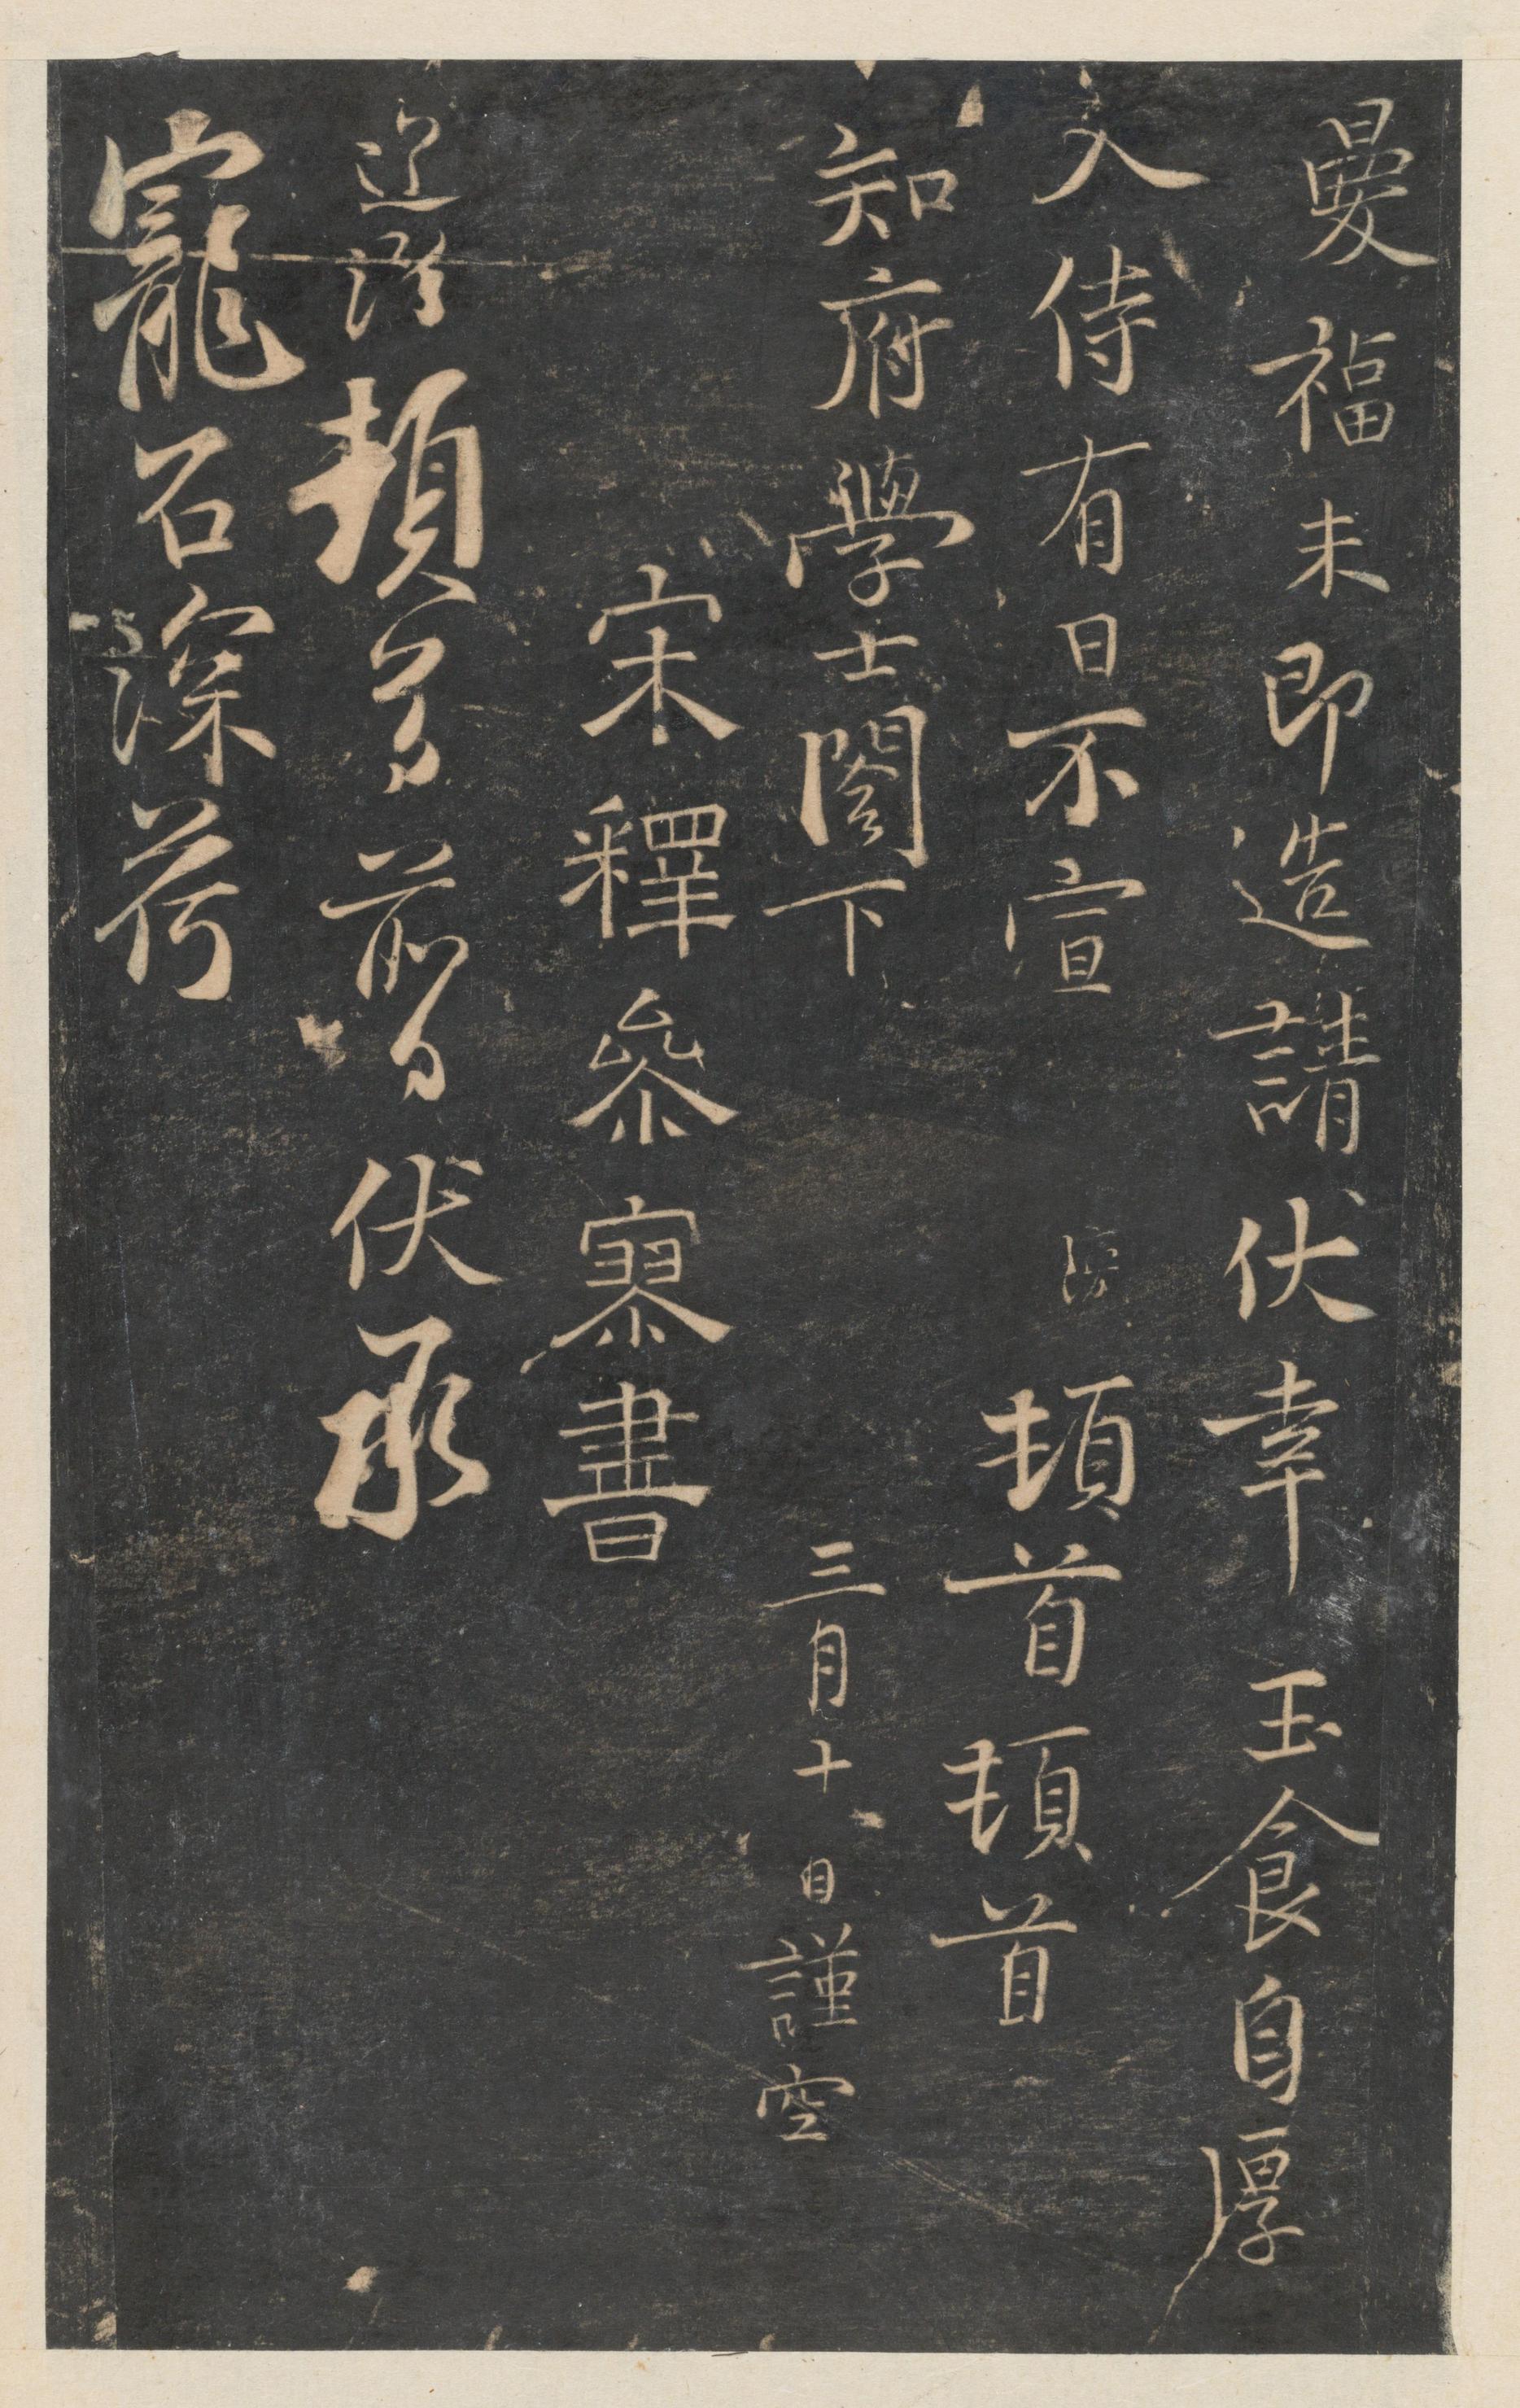 曼福未即造請伏幸玉食自厚
入侍有日不宣 頓首頓首
知府學士閣下 三月十日謹空
宋釋參寥書
道潛頓首前日伏承
寵召深荷